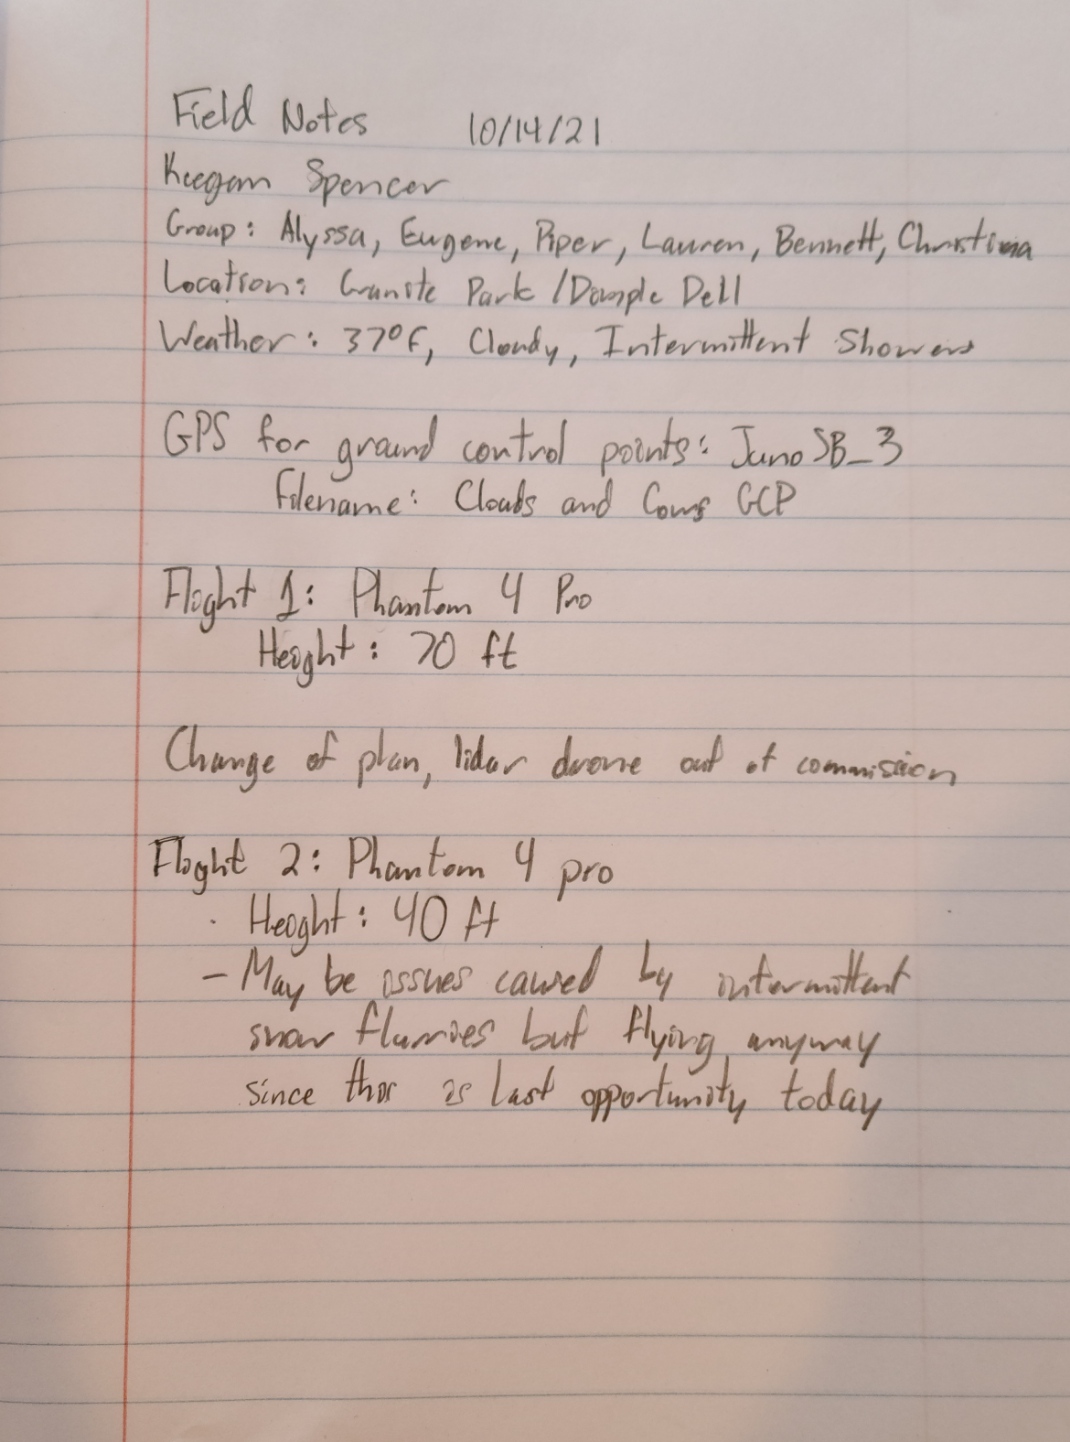 Field Notes 10/14/21
Keegan Spencer
Group: Alyssa, Eugene, Piper, Lauren, Bennett, Christina
Location: Granite Park / Dimple Dell
Weather: 37°F, Cloudy, Intermittent Showers
GPS for ground control points: Juno SB_3
Filename: Clouds and Cows GCP
Flight 1: Phantom 4 Pro
Height: 70 ft
Change of plan, lidar drone out of commission
Flight 2: Phantom 4 pro
· Height: 40 ft
- May be issues caused by intermittent
snow flurries but flying anyway
since this is last opportunity today